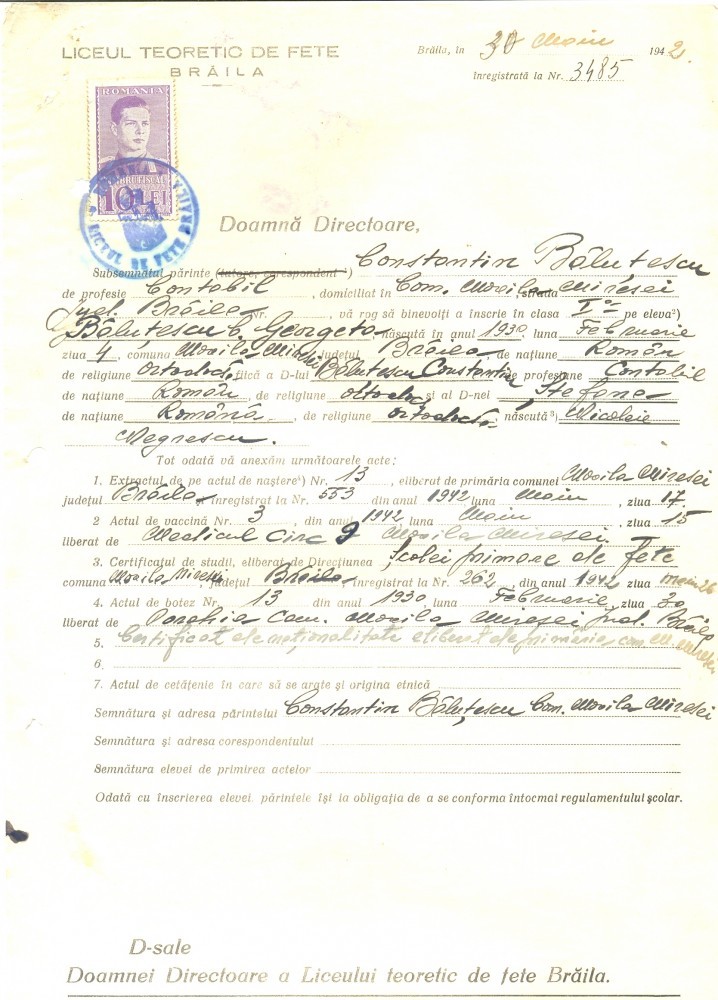 LICEUL TEORETIC DE FETE
BRĂILA
Brăila, în 30 Main 1942
înregistrată la Nr. 3485
ROMANIA
TIMBRU FISCAL
10 LEI
LICEUL DE FETE BRĂILA
Doamnă Directoare,
Subsemnatul părinte (tutore, corespondent ¹) Constantin Băluțescu
de profesie Contabil, domiciliat în Com. Movila Miresei strada
jud. Brăila Nr. , vă rog să binevoiți a înscrie în clasa I-a pe eleva²)
Băluțescu C. Georgeta, născută în anul 1930, luna Februarie
ziua 4, comuna Movila Miresei județul Brăila de națiune Român
de religiune ortodocsă fiică a D-lui Băluțescu Constantin de profesiune Contabil
de națiune Român, de religiune ortodocs și al D-nei Ștefana
de națiune Română, de religiune ortodocsă, născută ³) Nicolaie
Negrescu.
Tot odată vă anexăm următoarele acte:
1. Extractul de pe actul de naștere⁴) Nr. 13, eliberat de primăria comunei Movila Miresei
județul Brăila înregistrat la Nr. 553 din anul 1942 luna Main, ziua 17.
2 Actul de vaccină Nr. 3, din anul 1942 luna Main, ziua 15
liberat de Medicul Circ 9 Movila Miresei.
3. Certificatul de studii, eliberat de Direcțiunea Școlei primare de fete
comuna Movila Miresei, județul Brăila, înregistrat la Nr. 262, din anul 1942 ziua main 26
4. Actul de botez Nr. 13 din anul 1930 luna Februarie, ziua 30
liberat de Parohia Com. Movila Miresei jud. Brăila
5. Certificat de naționalitate eliberat de primăria com. M. Miresei
6.
7. Actul de cetățenie în care să se arate și origina etnică
Semnătura și adresa părintelui Constantin Băluțescu Com. Movila Miresei
Semnătura și adresa corespondentului
Semnătura elevei de primirea actelor
Odată cu înscrierea elevei, părintele își ia obligația de a se conforma întocmai regulamentului școlar.
D-sale
Doamnei Directoare a Liceului teoretic de fete Brăila.